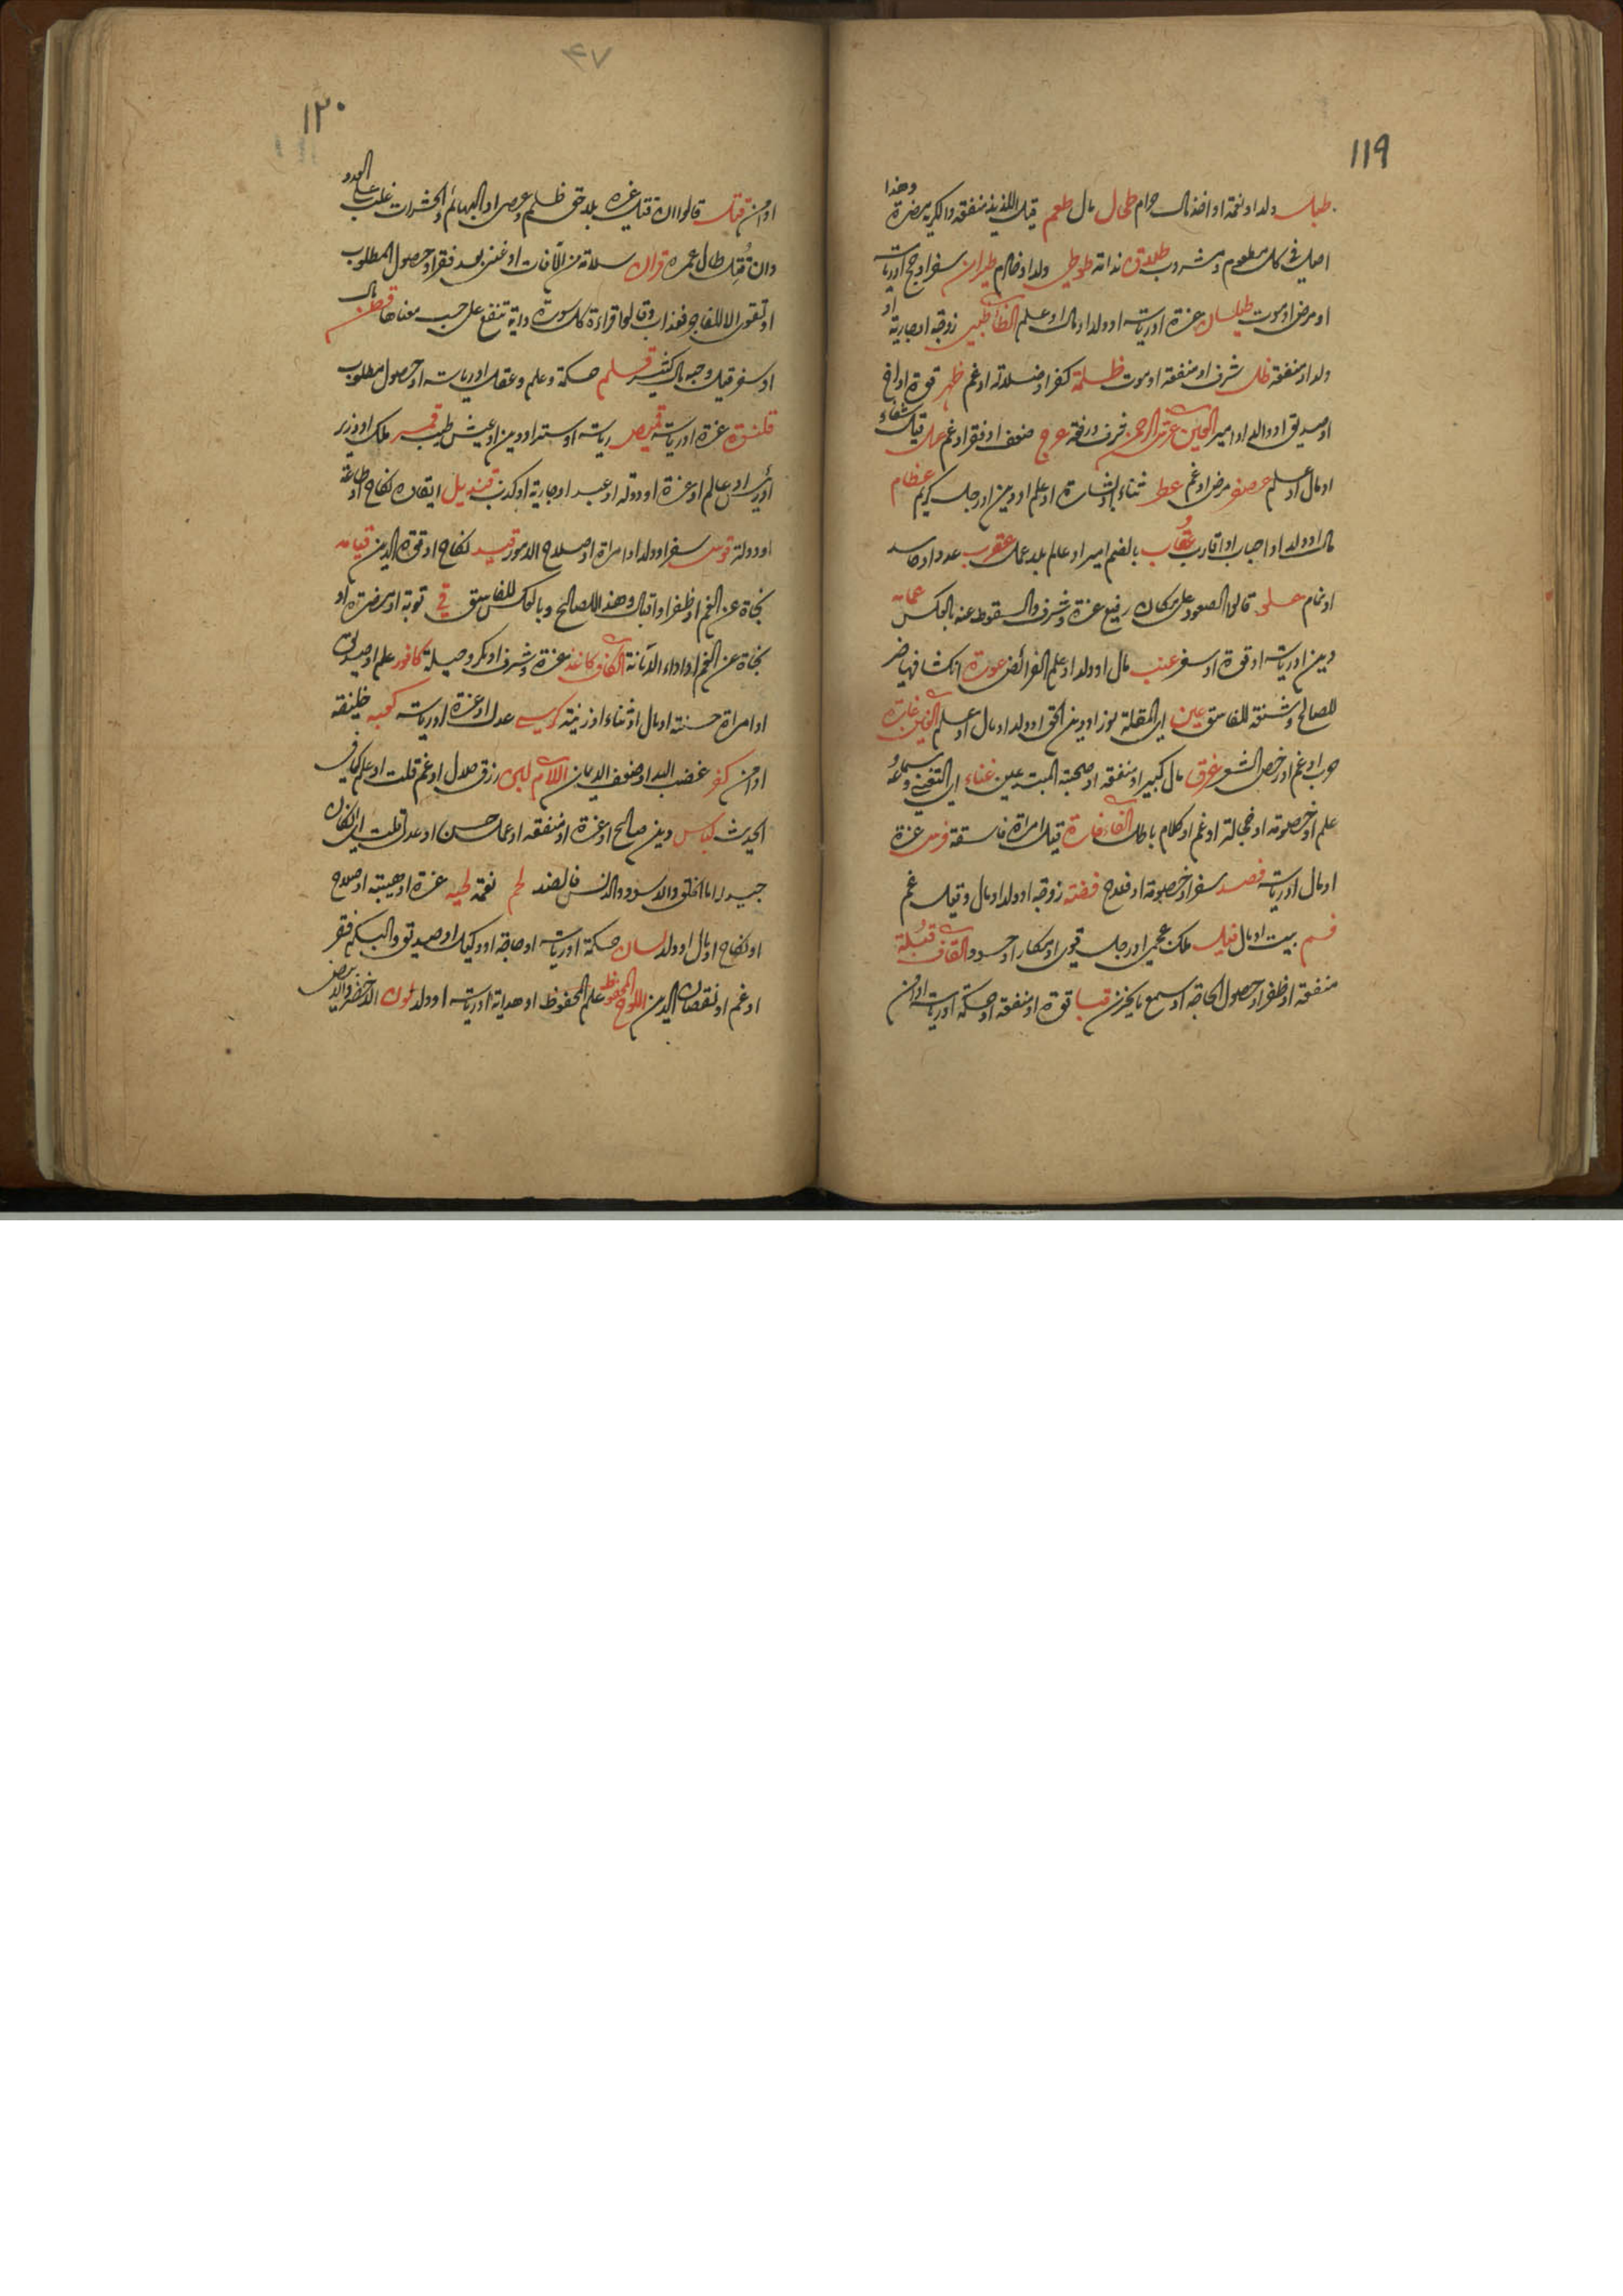 ١١٩
طبل ولد او نعمة او اخذ مال حرام طحال مال طعم قيل اللذيذ منفعة والكريه مضرة وهذا
اصل في كل مطعوم ومشروب طلاق ندامة طوطي ولد او خادم طيران سفر او حج او رياسة
او مرض او موت طيلسان عزة او رياسة او ولد او مال او علم الظاء ظبي زوجة او جارية او
ولد او منفعة ظل شرف او منفعة او موت ظلمة كفر او ضلالة او غم ظهر قوة او اخ
او صديق او والد او امير العين عرش الرحمن شرف ورفعة عرج ضعف او فقر او غم عسل قيل شفاء
او مال او علم عصفر مرض او غم عطر ثناء او بشارة او علم او دين او رجل كريم عظام
مال او ولد او احباب او اقارب عقاب بالضم امير او عالم بلا عمل عقرب عدو او حاسد
او نمام على قالوا الصعود على مكان رفيع عزة وشرف والسقوط عنه بالعكس عمامة
دين او رياسة او قوة او سفر عنب مال او ولد او علم الفرائض عورة انكشافها ضر
للصالح وشنعة للفاسق عين اي المقلة نور او دين الحق او ولد او مال او علم الغين غارة
حرب او غم او رخص السعر غرق مال كبير او منفعة او صحبة المبتدعين غناء اي التغني وسماعه
علم او خصومة او خجالة او غم او كلام باطل الفاء فارة قيل امراة فاسقة فرس عزة
او مال او رياسة فصد سفر او خصومة او فلاح فضة زوجة او ولد او مال وقيل غم
فم بيت او مال فيل ملك عجمي او رجل قوي او مكار او حسود القاف قبلة
منفعة او ظفر او حصول الحاجة او سمع ما يحزن قبا قوة او منفعة او حكمة او رياسة او امن
٤٧
١٢٠
او امن قتل قالوا ان قتل غيره بلا حق ظلم وعصى او البهائم والحشرات غلب على العدو
وان قتل طال عمره قران سلامة من الآفات او غنى بعد فقر او حصول المطلوب
او تقوى الا للفاجر فعذاب وقالوا قراءة كل سورة وآية تنفع على حسب معناها قطن مال
او سفر قيل وجوبا مال كثير قلم حكمة وعلم وعقل او رياسة او حصول مطلوب
قلنسوة عزة او رياسة قميص رياسة او ستر او دين او عيش طيب قمر ملك او وزير
او رئيس او عالم او عزة او دولة او عبد او جارية او كذب قنديل ايقاده نكاح او طاعة
او دولة قوس سفر او ولد او امراة او صلاح الامور قيد نكاح او قوة الدين قيامة
نجاة عن الغم او ظفر او اقبال وهذا للصالح وبالعكس للفاسق قي توبة او مضرة او
نجاة عن الغم او اداء الامانة الكاف كاغذ عزة وشرف او مكر وحيلة كافور علم او صديق
او امراة حسنة او مال او ثناء او زينة كرسي عدل او عزة او رياسة كعبة خليفة
او امن كفر غضب الله او ضعف الايمان اللام لبن رزق حلال او غم قلت او علم كما في
الحديث لباس دين صالح او عزة او منفعة او عمل حسن او عدل قلت ان كان
جيدا اما الخلق والاسود والدنس فالضد لحم نعمة لحية عزة او هيبة او صلاح
او نكاح او مال او ولد لسان حكمة او رياسة او حاجة او وكيل او صديق والبكم فقر
او غم او نقصان الدين اللوح المحفوظ علم المحفوظ او هداية او رياسة او ولد لون الاخضر والابيض